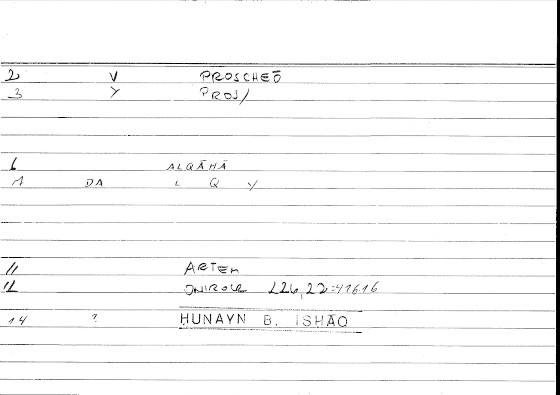 2 V PROSCHEŌ
3 Y PROS/
6 ALQĀHĀ
A DA L Q Y
11 ARTEM
12 ONIROCR 226,22:416.16
14 ? ḤUNAYN B. ISḤĀQ